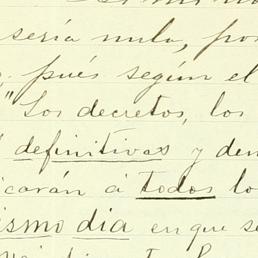 sería nula, por
pués según el
"Los decretos, los
definitivas y dem
icarán á todos lo
ismo dia en que se